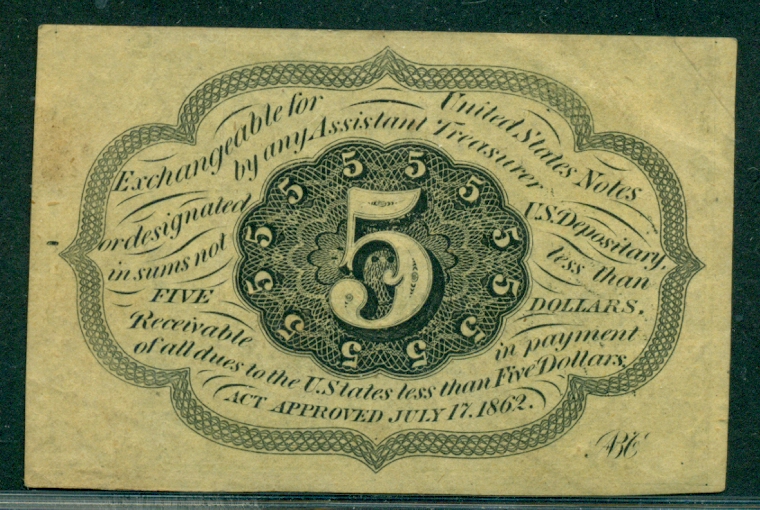 Exchangeable for United States Notes
by any Assistant Treasurer
or designated U.S. Depositary,
in sums not less than
FIVE DOLLARS.
Receivable in payment
of all dues to the U. States less than Five Dollars.
ACT APPROVED JULY 17, 1862.
5
5 5 5 5 5 5 5 5 5 5 5 5
ABC